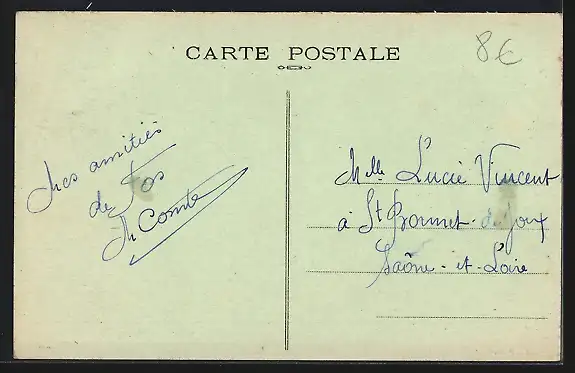 CARTE POSTALE
8€
Mes amitiés
de Fos
M Comte
Mlle Lucie Vincent
à St Bonnet-de Joux
Saône-et-Loire